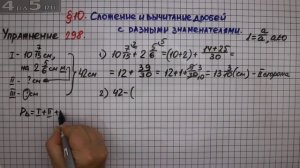 4на5.ру
§10. Сложение и вычитание дробей
с разными знаменателями.
Упражнение
298.
I - 10 7/15 см,
на 2 5/6 см
II - ? см
III - ? см
42 см
P△ = I + II +
1) 10 7/15 + 2 5/6 = (10+2) + (14+25)/30 =
= 12 + 39/30 = 12 + 1 9/30 = 13 3/10 (см) -
2) 42 - (